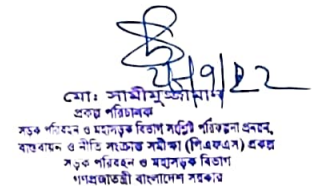 মো: সামীমুজ্জামান
প্রকল্প পরিচালক
সড়ক পরিবহন ও মহাসড়ক বিভাগ সংশ্লিষ্ট পরিকল্পনা প্রণয়ন,
বাস্তবায়ন ও নীতি সংক্রান্ত সমীক্ষা (পিএফএস) প্রকল্প
সড়ক পরিবহন ও মহাসড়ক বিভাগ
গণপ্রজাতন্ত্রী বাংলাদেশ সরকার